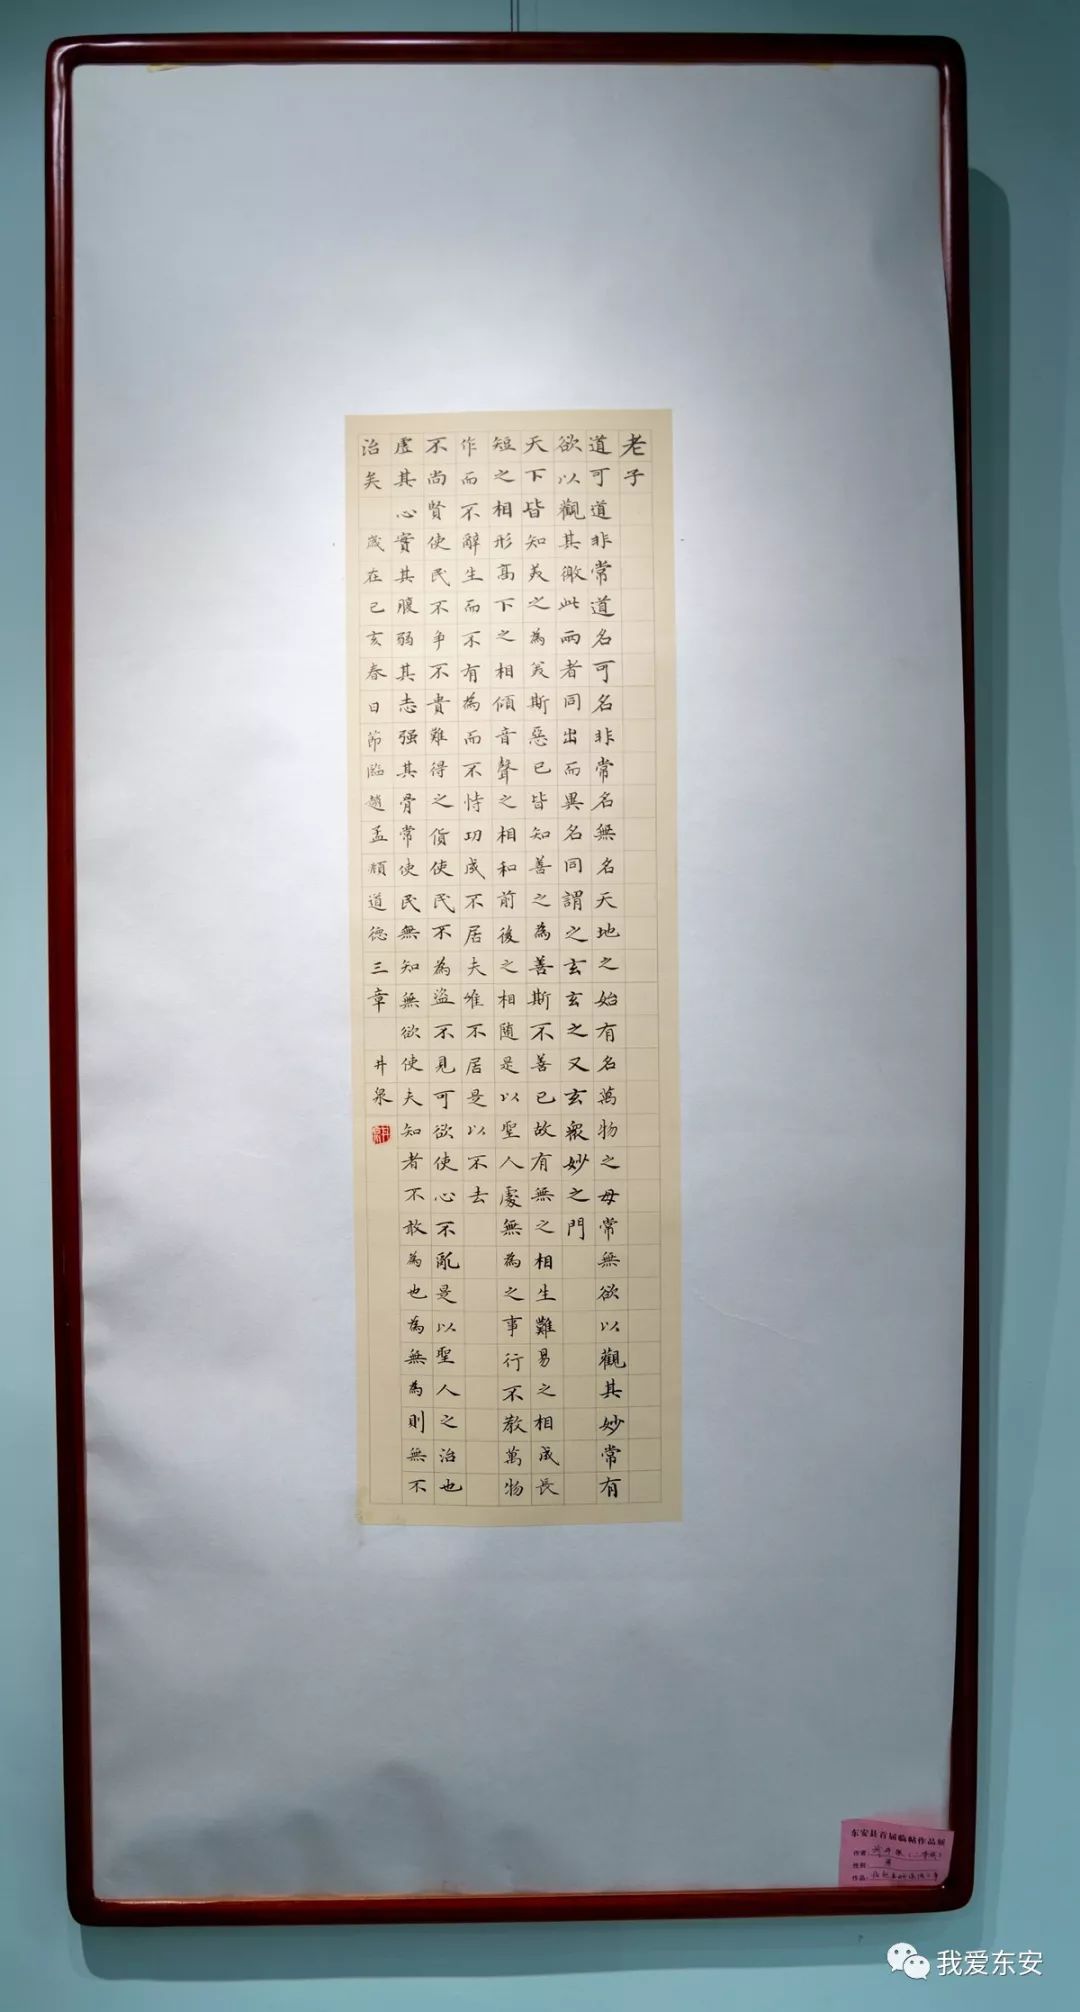 老子
道可道非常道名可名非常名無名天地之始有名萬物之母常無欲以觀其妙常有
欲以觀其徼此兩者同出而異名同謂之玄玄之又玄衆妙之門
天下皆知美之為美斯惡已皆知善之為善斯不善已故有無之相生難易之相成長
短之相形高下之相傾音聲之相和前後之相随是以聖人處無為之事行不教萬物
作而不辭生而不有為而不恃功成不居夫唯不居是以不去
不尚賢使民不争不貴難得之貨使民不為盗不見可欲使心不亂是以聖人之治也
虚其心實其腹弱其志强其骨常使民無知無欲使夫知者不敢為也為無為則無不
治矣 歲在己亥春日節臨趙孟頫道德三章 井泉
东安县首届临帖作品展
作者:
性别: 男
作品:
我爱东安